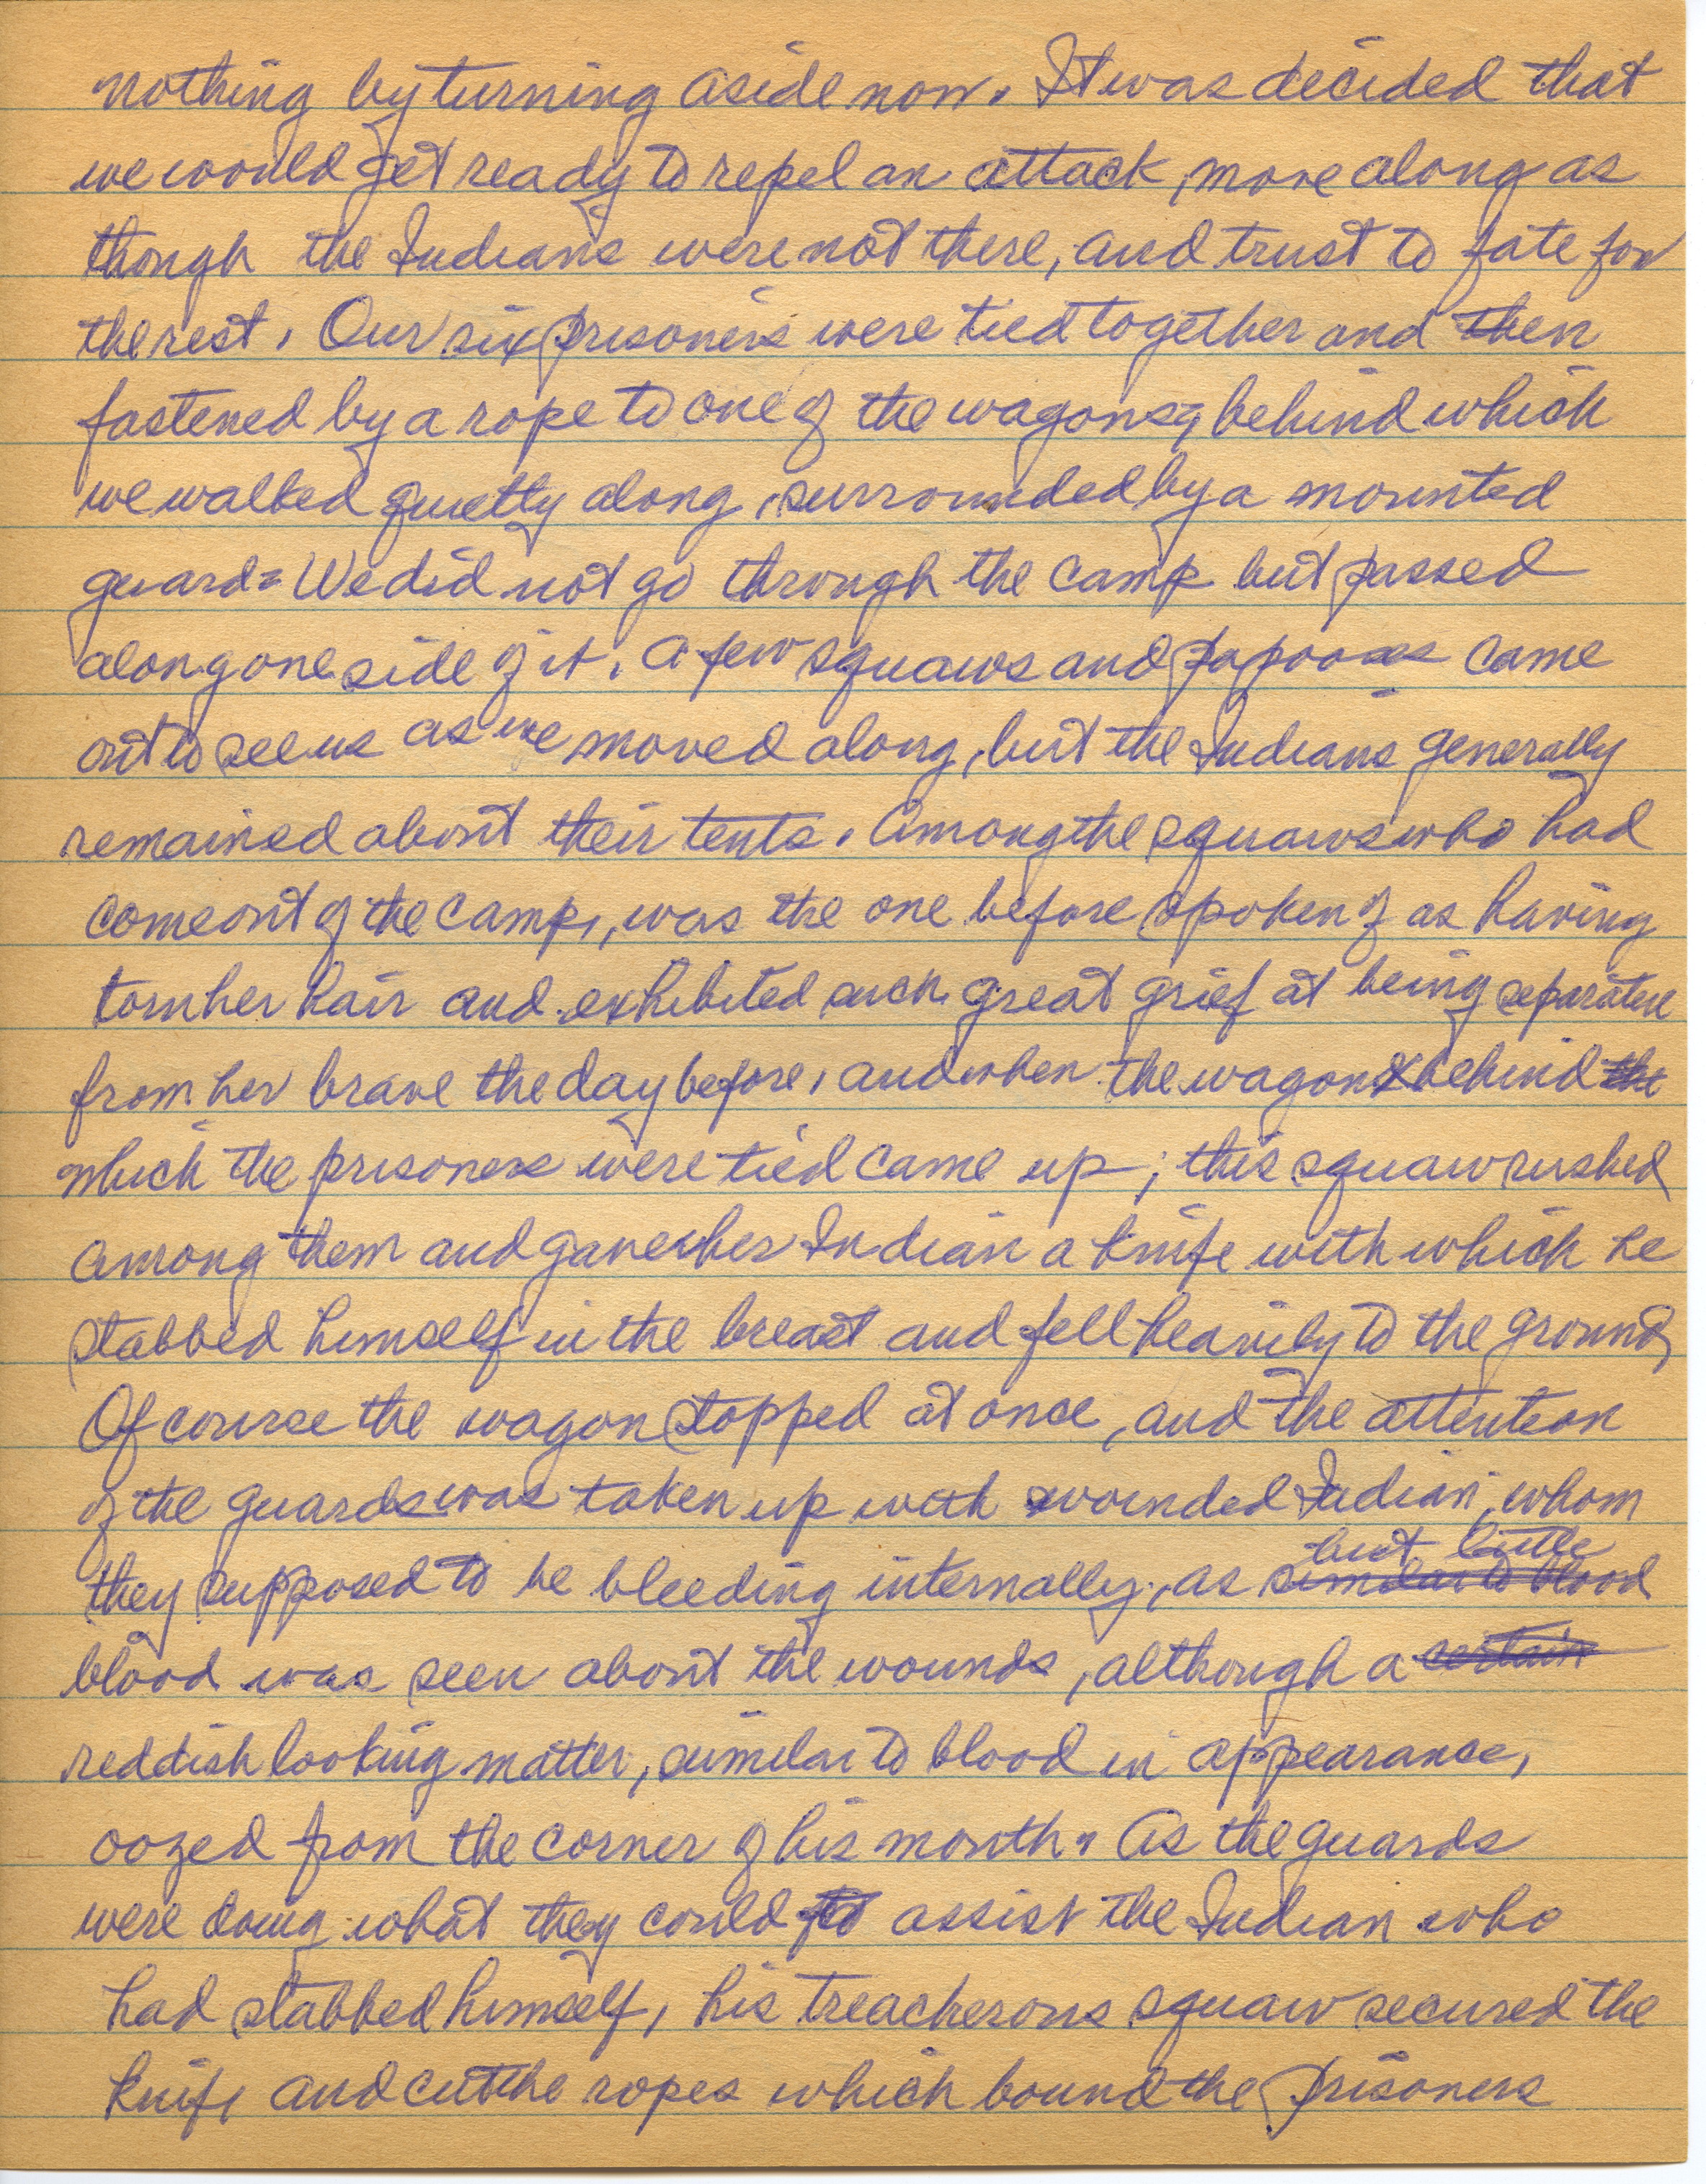 nothing by turning aside now. It was decided that
we would get ready to repel an attack, move along as
though the Indians were not there, and trust to fate for
the rest. Our six prisoners were tied together and then
fastened by a rope to one of the wagons, behind which
we walked quietly along, surrounded by a mounted
guard. We did not go through the camp but passed
along one side of it. A few squaws and papooses came
out to see us as we moved along, but the Indians generally
remained about their tents. Among the squaws who had
come out of the camp, was the one before spoken of as having
torn her hair and exhibited such great grief at being separated
from her brave the day before, and when the wagon behind the
which the prisoners were tied came up; this squaw rushed
among them and gave her Indian a knife with which he
stabbed himself in the breast and fell heavily to the ground,
Of course the wagon stopped at once, and the attention
of the guards was taken up with wounded Indian, whom
but little
they supposed to be bleeding internally, as similar to blood
blood was seen about the wounds, although a certain
reddish looking matter, similar to blood in appearance,
oozed from the corner of his mouth. As the guards
were doing what they could to assist the Indian who
had stabbed himself, his treacherous squaw secured the
knife and cut the ropes which bound the prisoners